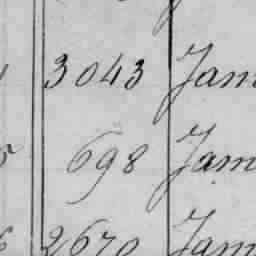 3043 Jam
698 Jam
2670 Jam